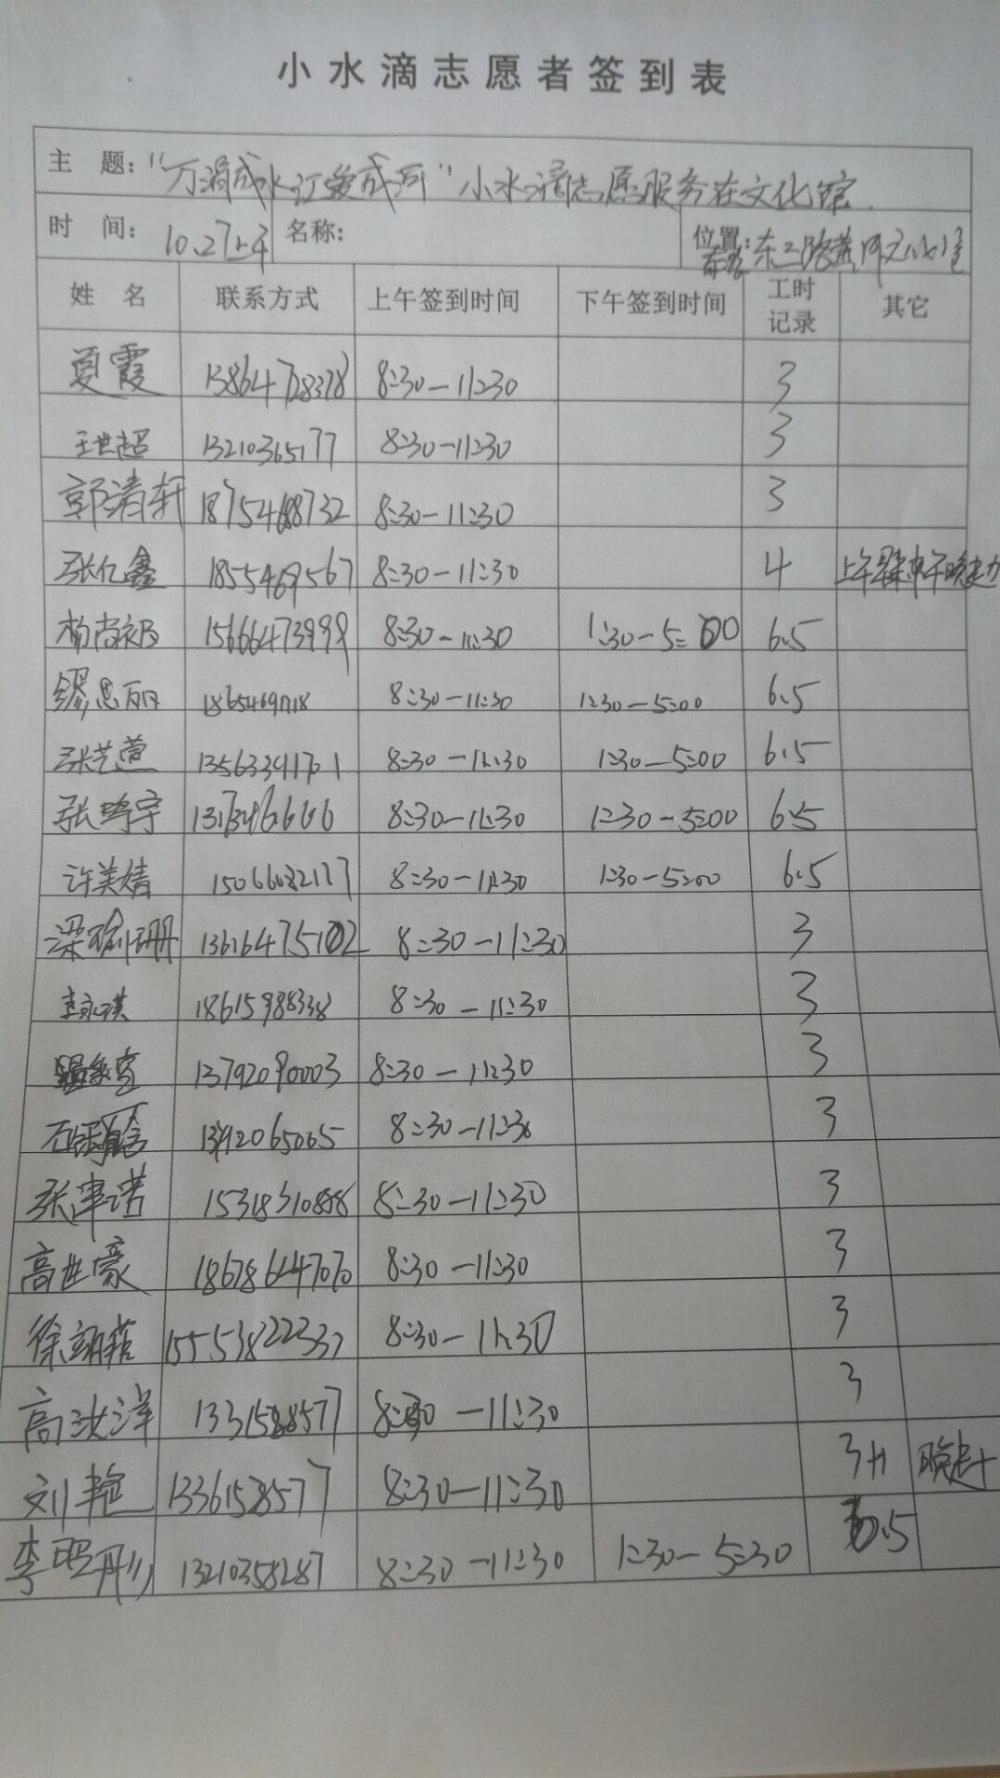 小水滴志愿者签到表
主 题:"万涓成水 汇爱成河"小水滴志愿服务在文化馆
时 间: 10.27上午 名称: 位置: 东二路黄河
姓 名 联系方式 上午签到时间 下午签到时间 工时记录 其它
夏霞 15864728378 8:30-11:30 3
王世超 13210365177 8:30-11:30 3
郭清轩 18754688732 8:30-11:30 3
张亿鑫 1855469567 8:30-11:30 4 上午
杨尚 15666473999 8:30-11:30 1:30-5:00 6.5
缪思丽 8:30-11:30 1:30-5:00 6.5
张艺萱 13563391701 8:30-11:30 1:30-5:00 6.5
张鸣宇 8:30-11:30 1:30-5:00 6.5
许美婧 15066032177 8:30-11:30 1:30-5:00 6.5
梁瑜珊 13616475102 8:30-11:30 3
李永琪 18615988338 8:30-11:30 3
13792090003 8:30-11:30 3
石 8:30-11:30 3
张津诺 15318310888 8:30-11:30 3
高世豪 18678644707 8:30-11:30 3
徐翊菘 15553822233 8:30-11:30 3
高汝洋 13315888577 8:30-11:30 3
刘艳 1336158577 8:30-11:30 3+1
李昭彤 13210358287 8:30-11:30 1:30-5:30 6.5